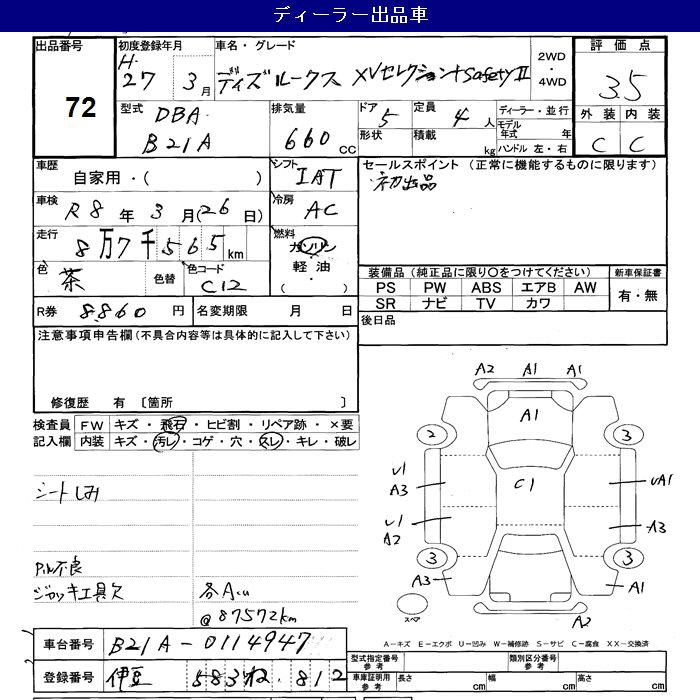 ディーラー出品車
出品番号 72
初度登録年月 H. 27 3月
車名・グレード デイズルークス XVセレクション Safety II
2WD・4WD
評価点 3.5
外装 C 内装 C
型式 DBA B21A
排気量 660 cc
ドア 5 形状
定員 4人 積載 kg
ディーラー・並行
モデル年式 年
ハンドル 左・右
車歴 自家用・( )
シフト IAT
セールスポイント (正常に機能するものに限ります)
初出品
車検 R8年3月(26日)
冷房 AC
走行 8万7千565km
燃料 ガソリン・軽油・( )
色 茶 色替
色コード C12
装備品 (純正品に限り○をつけてください)
PS PW ABS エアB AW
SR ナビ TV カワ
新車保証書 有・無
R券 8860円
名変期限 月 日
後日品
注意事項申告欄(不具合内容等は具体的に記入して下さい)
修復歴 有 〔箇所 〕
検査員記入欄
FW キズ・飛石・ヒビ割・リペア跡・×要
内装 キズ・汚レ・コゲ・穴・スレ・キレ・破レ
シートしみ
ジャッキ工具欠
各Aa
@87572km
A2 A1 A1
A1
2 3
U1 A3
C1
UA1
U1 A2
A3
3 3
A3 A1
スペア
A2
A-キズ E-エクボ U-凹み W-補修跡 S-サビ C-腐食 XX-交換済
車台番号 B21A-0114947
登録番号 伊豆 583 ね ・812
型式指定番号 参考
類別区分番号 参考
車庫証明用 参考 長さ cm 幅 cm 高さ cm